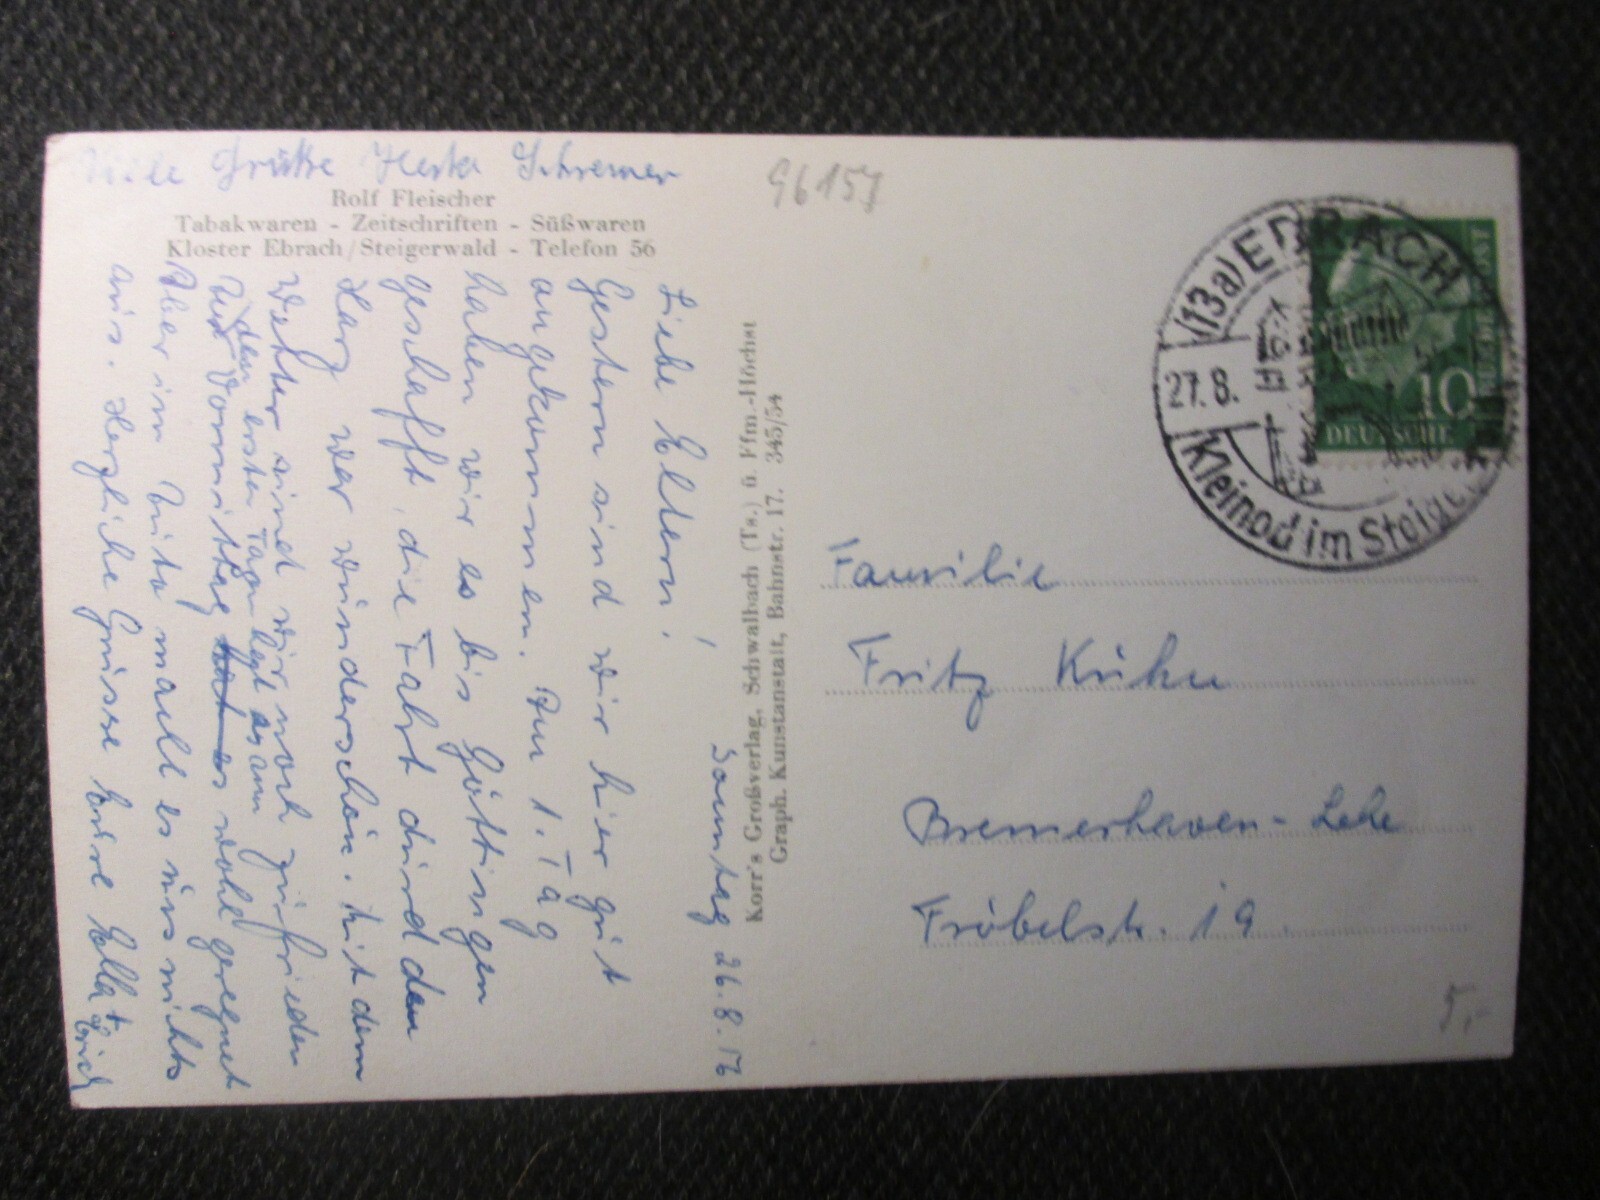 Viele Grüße Herta Schremer
Rolf Fleischer
Tabakwaren - Zeitschriften - Süßwaren
Kloster Ebrach/Steigerwald - Telefon 56
96157
Sonntag 26.8.56
Liebe Eltern!
Gestern sind wir hier gut
angekommen. Am 1. Tag
haben wir es bis Göttingen
geschafft, die Fahrt durch den
Harz war wunderschön. Mit dem
Wetter sind wir noch zufrieden
In den ersten Tagen legt es am
Vormittag hat es wohl geregnet
Aber im Auto macht es uns nichts
aus. Herzliche Grüsse Eure Ella + Erich
Korr's Großverlag, Schwalbach (Ts.) ü. Ffm.-Höchst
Graph. Kunstanstalt, Bahnstr. 17. 345/54
(13a) EBRACH
27.8.
Kleinod im Steige
10
DEUTSCHE
BUNDESPOST
Familie
Fritz Kühn
Bremerhaven-Lehe
Fröbelstr. 19.
5,-